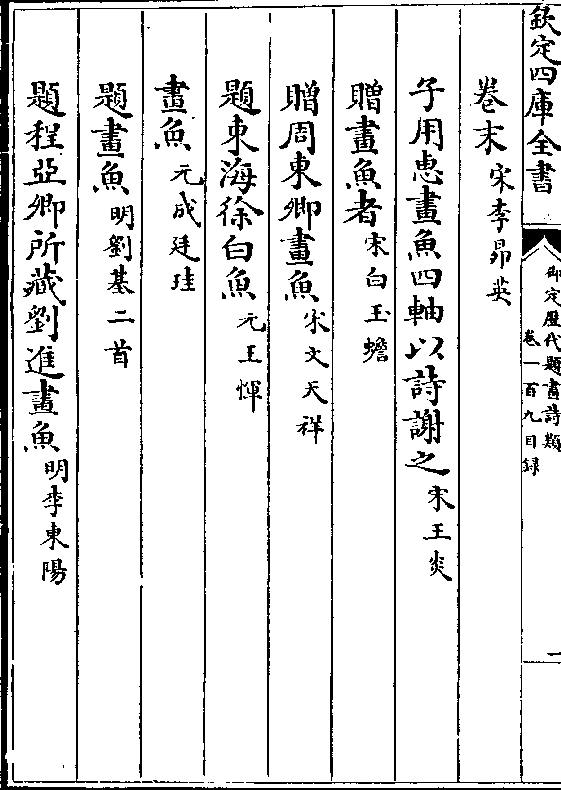 欽定四庫全書
御定歷代題畫詩類
卷一百九目録
二
卷末 宋李昴英
子用惠畫魚四軸以詩謝之 宋王炎
贈畫魚者 宋白玉蟾
贈周東卿畫魚 宋文天祥
題東海徐白魚 元王惲
畫魚 元成廷珪
題畫魚 明劉基二首
題程亞卿所藏劉進畫魚 明李東陽